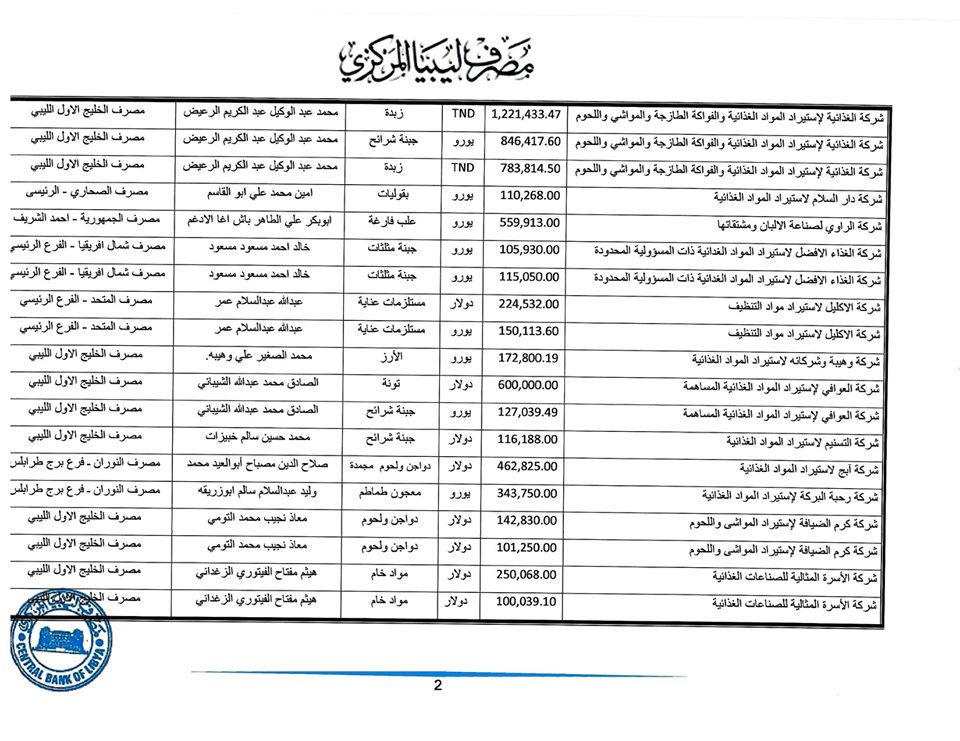 مصرف ليبيا المركزي
شركة الغذائية لإستيراد المواد الغذائية والفواكة الطازجة والمواشي واللحوم 1,221,433.47 TND زبدة محمد عبد الوكيل عبد الكريم الرعيض مصرف الخليج الاول الليبي
شركة الغذائية لإستيراد المواد الغذائية والفواكة الطازجة والمواشي واللحوم 846,417.60 يورو جبنة شرائح محمد عبد الوكيل عبد الكريم الرعيض مصرف الخليج الاول الليبي
شركة الغذائية لإستيراد المواد الغذائية والفواكة الطازجة والمواشي واللحوم 783,814.50 TND زبدة محمد عبد الوكيل عبد الكريم الرعيض مصرف الخليج الاول الليبي
شركة دار السلام لاستيراد المواد الغذائية 110,268.00 يورو بقوليات امين محمد علي ابو القاسم مصرف الصحاري - الرئيسى
شركة الراوي لصناعة الالبان ومشتقاتها 559,913.00 يورو علب فارغة ابوبكر علي الطاهر باش اغا الادغم مصرف الجمهورية - احمد الشريف
شركة الغذاء الافضل لاستيراد المواد الغدائية ذات المسؤولية المحدودة 105,930.00 يورو جبنة مثلثات خالد احمد مسعود مسعود مصرف شمال افريقيا - الفرع الرئيسي
شركة الغذاء الافضل لاستيراد المواد الغدائية ذات المسؤولية المحدودة 115,050.00 يورو جبنة مثلثات خالد احمد مسعود مسعود مصرف شمال افريقيا - الفرع الرئيسي
شركة الاكليل لاستيراد مواد التنظيف 224,532.00 دولار مستلزمات عناية عبدالله عبدالسلام عمر مصرف المتحد - الفرع الرئيسي
شركة الاكليل لاستيراد مواد التنظيف 150,113.60 يورو مستلزمات عناية عبدالله عبدالسلام عمر مصرف المتحد - الفرع الرئيسي
شركة وهيبة وشركائه لاستيراد المواد الغذائية 172,800.19 يورو الأرز محمد الصغير علي وهيبه. مصرف الخليج الاول الليبي
شركة العوافي لإستيراد المواد الغذائية المساهمة 600,000.00 دولار تونة الصادق محمد عبدالله الشيباني مصرف الخليج الاول الليبي
شركة العوافي لإستيراد المواد الغذائية المساهمة 127,039.49 يورو جبنة شرائح الصادق محمد عبدالله الشيباني مصرف الخليج الاول الليبي
شركة التسنيم لاستيراد المواد الغذائية 116,188.00 دولار جبنة شرائح محمد حسين سالم خبيزات مصرف الخليج الاول الليبي
شركة آبج لاستيراد المواد الغذائية 462,825.00 دولار دواجن ولحوم مجمدة صلاح الدين مصباح أبوالعيد محمد مصرف النوران - فرع برج طرابلس
شركة رحبة البركة لإستيراد المواد الغذائية 343,750.00 يورو معجون طماطم وليد عبدالسلام سالم ابوزريقه مصرف النوران - فرع برج طرابلس
شركة كرم الضيافة لإستيراد المواشى واللحوم 142,830.00 دولار دواجن ولحوم معاذ نجيب محمد التومي مصرف الخليج الاول الليبي
شركة كرم الضيافة لإستيراد المواشى واللحوم 101,250.00 دولار دواجن ولحوم معاذ نجيب محمد التومي مصرف الخليج الاول الليبي
شركة الأسرة المثالية للصناعات الغذائية 250,068.00 دولار مواد خام هيثم مفتاح الفيتوري الزغداني مصرف الخليج الاول الليبي
شركة الأسرة المثالية للصناعات الغذائية 100,039.10 دولار مواد خام هيثم مفتاح الفيتوري الزغداني مصرف الخليج الاول الليبي
مصرف ليبيا المركزي
CENTRAL BANK OF LIBYA
2